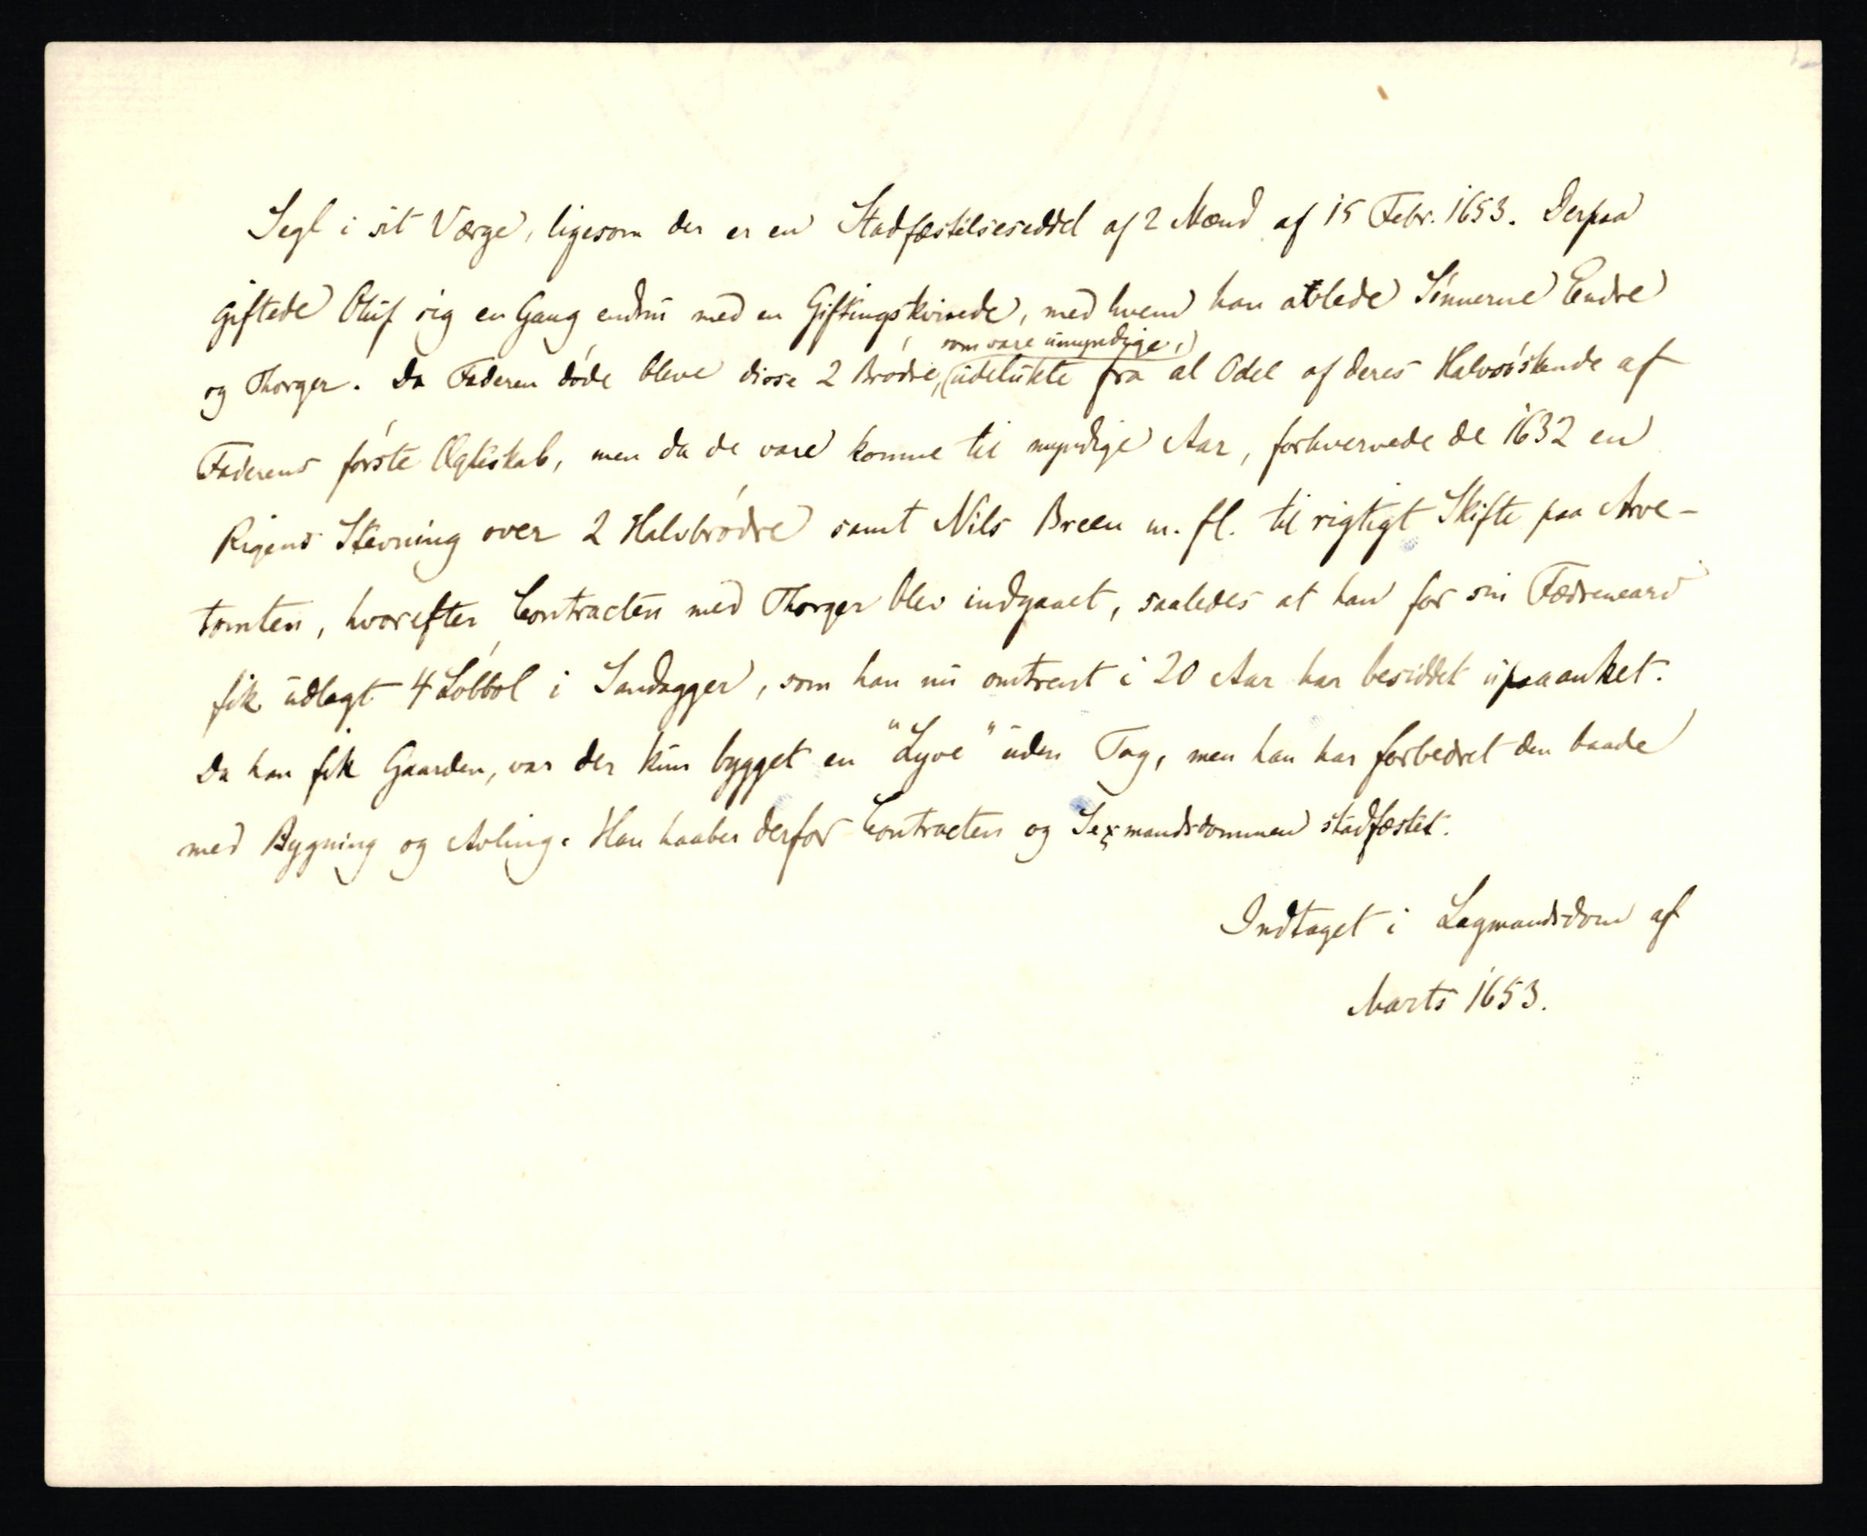 Segl i sit Værge, ligesom der er en Stadfæstelsesseddel af 2 Mænd af 15 Febr. 1653. Derpaa
giftede Oluf sig en Gang endnu med en Giftingskvinde, med hvem han avlede Sønnerne Endre
som vare umyndige,
og Thorger. Da Faderen døde bleve disse 2 Brødre, udelukte fra al Odel af deres Halvsøskende af
Faderens første Ægteskab, men da de vare komne til myndige Aar, forhvervede de 1632 en
Rigens Stevning over 2 Halvbrødre samt Nils Breen m. fl. til rigtigt Skifte paa Arve-
tomten, hvorefter Contracten med Thorger blev indgaaet, saaledes at han for sin Fædrenearv
fik udlagt 4 Løbbol i Sandagger, som han nu omtrent i 20 Aar har besiddet upaaanket.
Da han fik Gaarden, var der kun bygget en "Lyve" uden Tag, men han har forbedret den baade
med Bygning og Avling. Han haaber derfor Contracten og Sexmandsdommen stadfæstet.
Indtaget i Lagmandsdom af
Marts 1653.